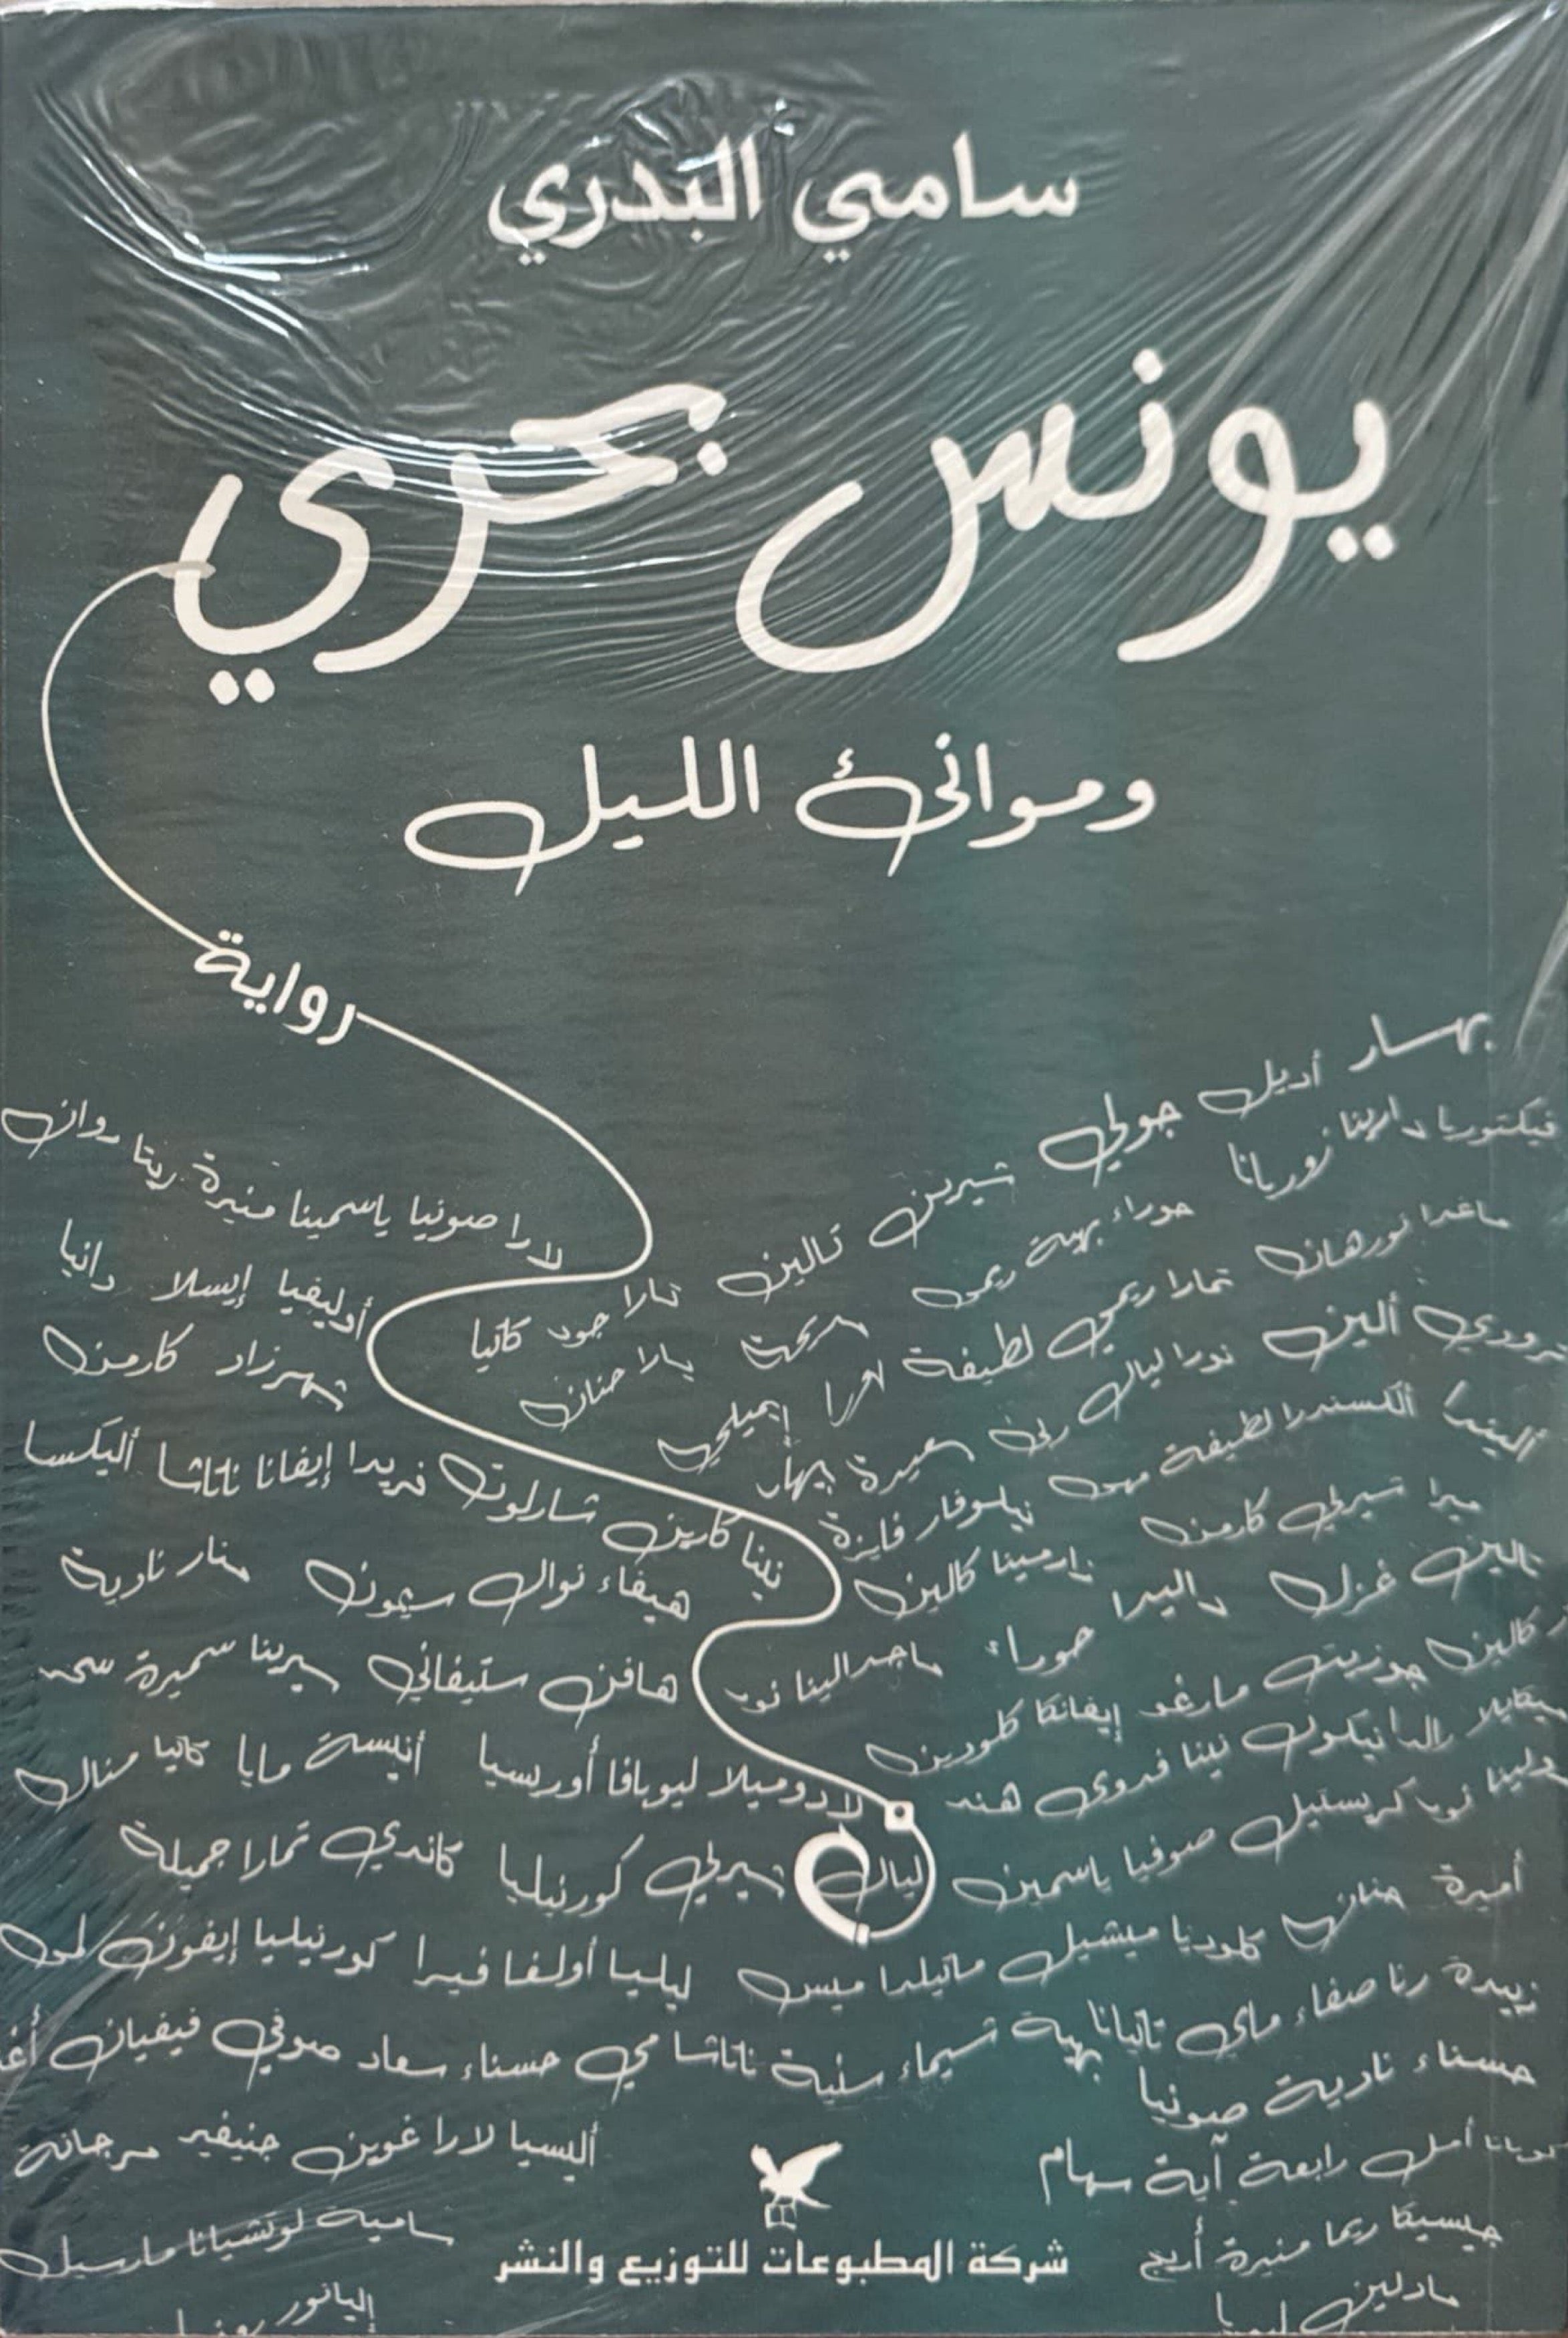 سامي البدري
يونس بحري
وموانئ الليل
رواية
بهسار أديل جولي شيرين تالين تارا جود كاتيا
فيكتوريا دارينا زوريانا حوراء بهية ريمى مديحة يارا حنان
ماغدا نورهان تمارا ريمي لطيفة لورا إيميلي
ألين نورا ليال رنى عبيرة جيهان
ألكسندرا لطيفة مهى نيلوفار فايزة
ميرا شيرلي كارمن نارمينا كالين
تالين غزل داليدا حوراء ماجدالينا نور
كالين جوزيت مارغو إيفانكا كلودين
رالدا نيكول نينا فدوى هند
نور كريستيل صوفيا ياسمين
أميرة حنان كلوديا ميشيل ماتيلدا ميس
زبيدة رنا صفاء ماي تاتيانا بهية شيماء سنية ناتاشا مي حسناء سعاد صوفي فيفيان
حسناء نادية صونيا
أمل رابعة آية سهام
جيسيكا ريما منيرة أريج
مادلين
لارا صونيا ياسمينا منيرة ريتا روان
أوليفيا إيسلا دانيا
شهرزاد كارمن
نينا كارين شارلوت فريدا إيفانا ناتاشا أليكسا
هيفاء نوال سيمون منار نادية
هافن ستيفاني سيرينا سميرة سحر
لادوميلا ليوبافا أورسيا أنيسة مايا كاتيا منال
ليال شيرلي كورنيليا كاندي تمارا جميلة
ليليا أولغا فيرا كورنيليا إيفون لمى
أليسيا لارا غوين جنيفير مرجانة
سامية لوتشيانا مارسيل
إليانور
شركة المطبوعات للتوزيع والنشر